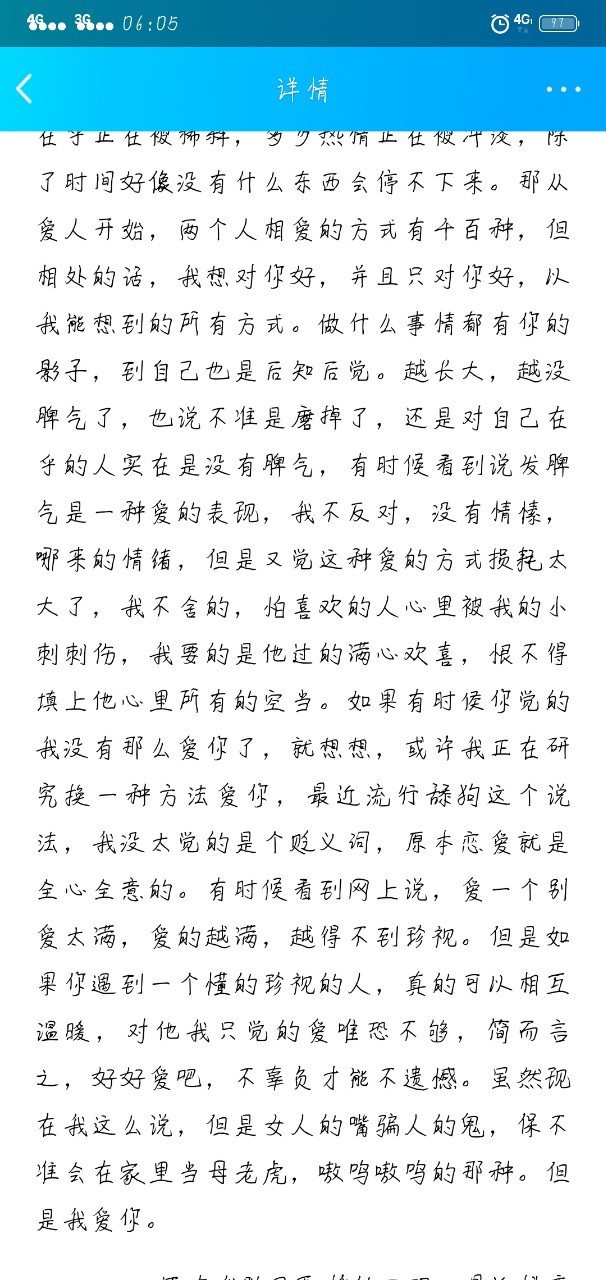 4G 3G 06:05 4G 97
详情
在乎正在被稀释，多少热情正在被冲淡，除
了时间好像没有什么东西会停不下来。那从
爱人开始，两个人相爱的方式有千百种，但
相处的话，我想对你好，并且只对你好，以
我能想到的所有方式。做什么事情都有你的
影子，到自己也是后知后觉。越长大，越没
脾气了，也说不准是磨掉了，还是对自己在
乎的人实在是没有脾气，有时候看到说发脾
气是一种爱的表现，我不反对，没有情愫，
哪来的情绪，但是又觉这种爱的方式损耗太
大了，我不舍的，怕喜欢的人心里被我的小
刺刺伤，我要的是他过的满心欢喜，恨不得
填上他心里所有的空当。如果有时侯你觉的
我没有那么爱你了，就想想，或许我正在研
究换一种方法爱你，最近流行舔狗这个说
法，我没太觉的是个贬义词，原本恋爱就是
全心全意的。有时候看到网上说，爱一个别
爱太满，爱的越满，越得不到珍视。但是如
果你遇到一个懂的珍视的人，真的可以相互
温暖，对他我只觉的爱唯恐不够，简而言
之，好好爱吧，不辜负才能不遗憾。虽然现
在我这么说，但是女人的嘴骗人的鬼，保不
准会在家里当母老虎，嗷呜嗷呜的那种。但
是我爱你。